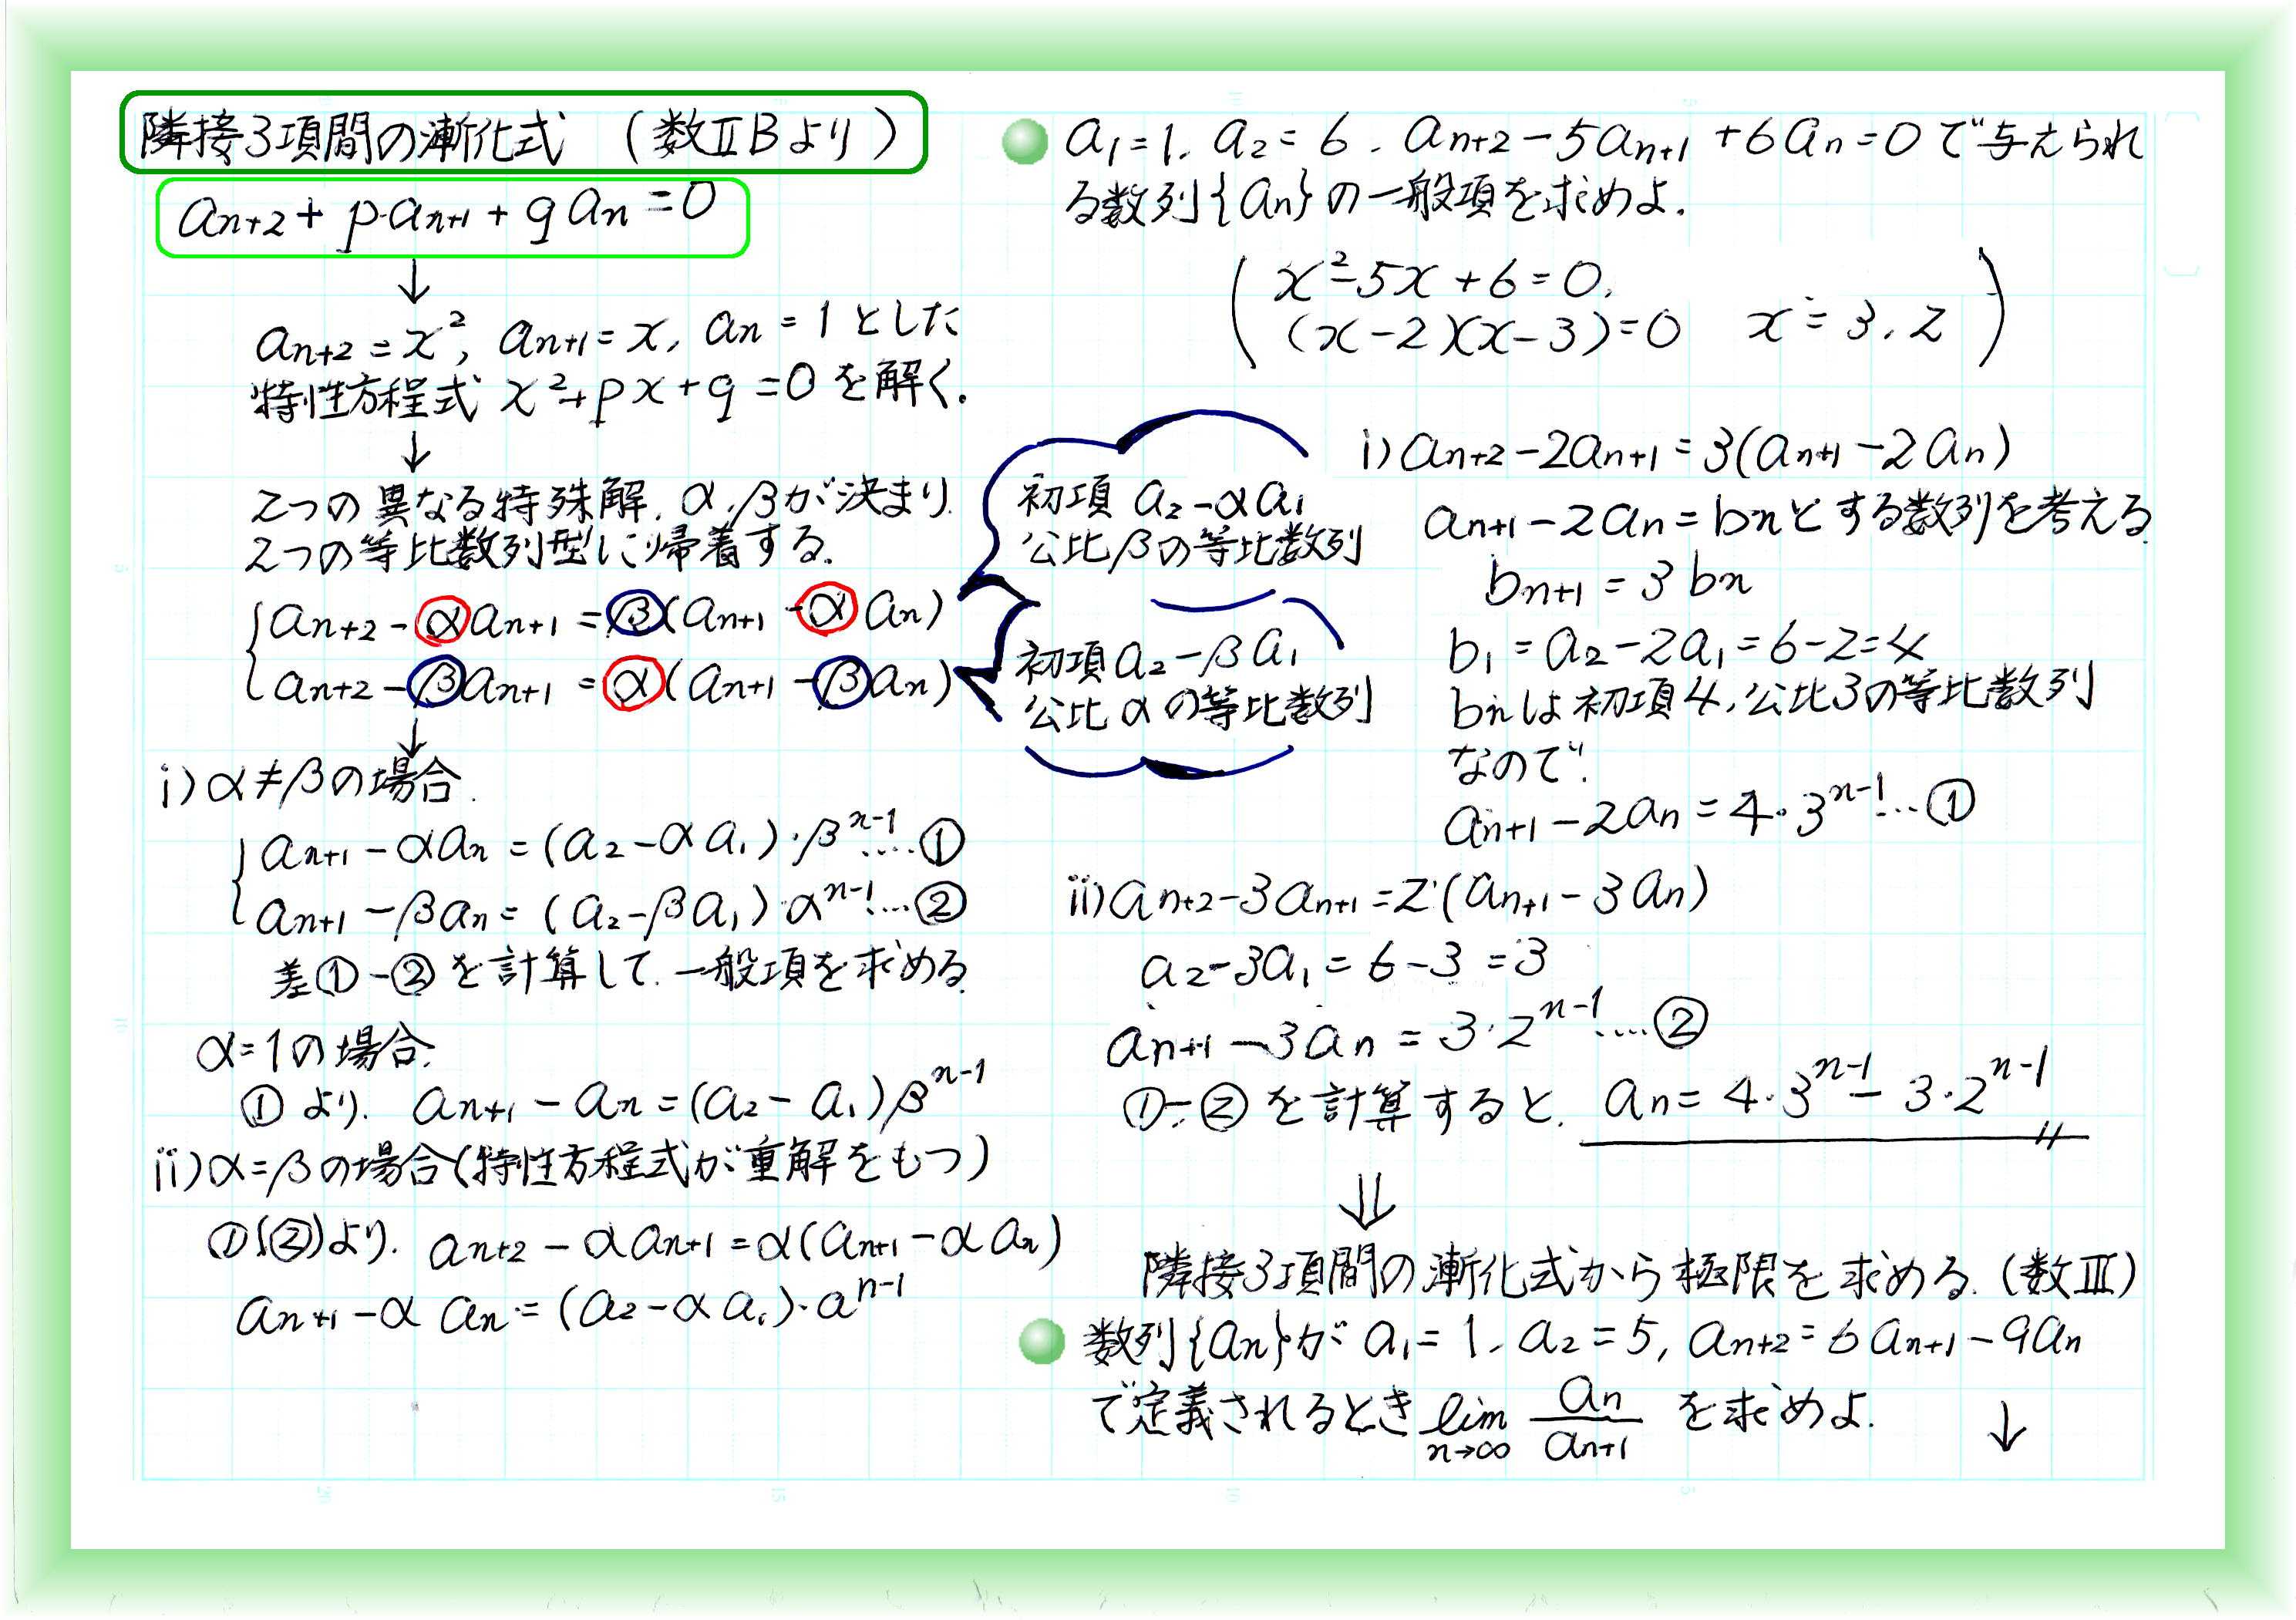 隣接3項間の漸化式 （数ⅡBより）
an+2 + p·an+1 + q an = 0
↓
an+2 = x², an+1 = x, an = 1 とした
特性方程式 x²+px+q=0を解く.
↓
2つの異なる特殊解, α, βが決まり
2つの等比数列型に帰着する.
{ an+2 - α an+1 = β(an+1 - α an)
an+2 - β an+1 = α(an+1 - β an)
初項 a2-αa1
公比βの等比数列
初項 a2-βa1
公比αの等比数列
↓
i) α≠βの場合.
{ an+1 - αan = (a2 - αa1)·β^n-1 … ①
an+1 - βan = (a2 - βa1)·α^n-1 … ②
差①-②を計算して. 一般項を求める.
α=1の場合.
①より. an+1 - an = (a2 - a1)β^n-1
ii) α=βの場合(特性方程式が重解をもつ)
①(②)より. an+2 - αan+1 = α(an+1 - αan)
an+1 - α an = (a2 - αa1)·a^n-1
a1=1, a2=6, an+2-5an+1+6an=0で与えられ
る数列{an}の一般項を求めよ.
( x²-5x+6=0,
(x-2)(x-3)=0 x=3, 2 )
i) an+2-2an+1=3(an+1-2an)
an+1-2an=bnとする数列を考える.
bn+1=3bn
b1=a2-2a1=6-2=4
bnは初項4, 公比3の等比数列
なので.
an+1-2an=4·3^n-1 … ①
ii) an+2-3an+1=2·(an+1-3an)
a2-3a1=6-3=3
an+1-3an=3·2^n-1 … ②
①-②を計算すると. an=4·3^n-1-3·2^n-1
⇓
隣接3項間の漸化式から極限を求める.(数Ⅲ)
数列{an}が a1=1, a2=5, an+2=6an+1-9an
で定義されるとき lim n→∞ an/an+1 を求めよ. ↓